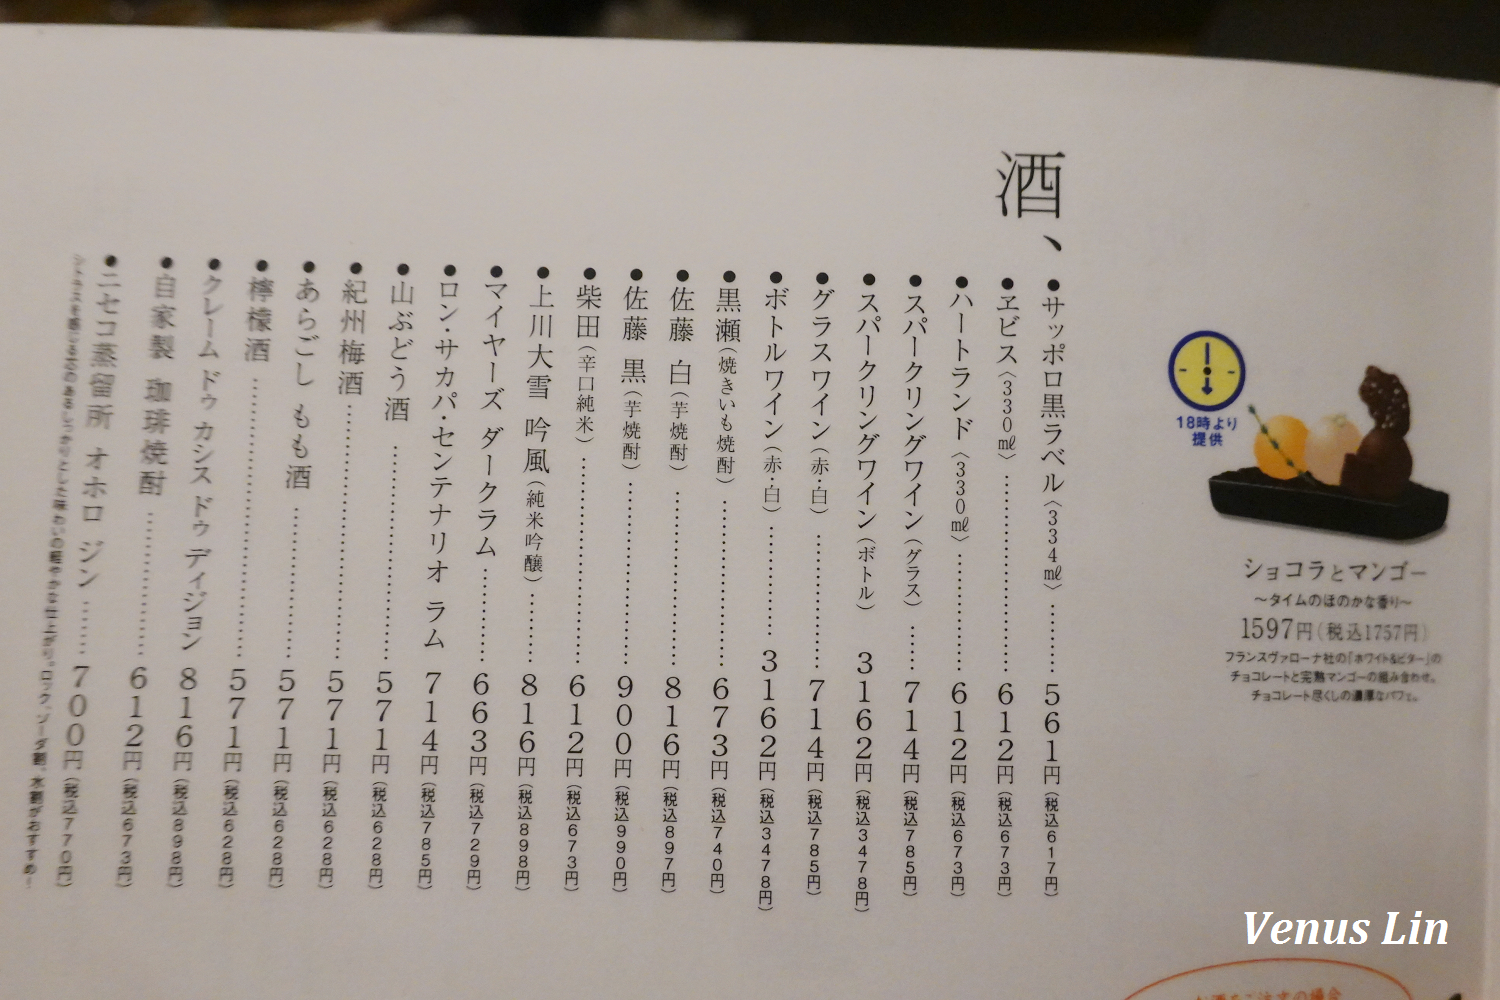 18時より
提供
ショコラとマンゴー
～タイムのほのかな香り～
1597円(税込1757円)
フランスヴァローナ社の「ホワイト&ビター」の
チョコレートと完熟マンゴーの組み合わせ。
チョコレート尽くしの濃厚なパフェ。
酒、
●サッポロ黒ラベル〈334㎖〉…………561円(税込617円)
●ヱビス〈330㎖〉…………612円(税込673円)
●ハートランド〈330㎖〉…………612円(税込673円)
●スパークリングワイン(グラス)……714円(税込785円)
●スパークリングワイン(ボトル) 3162円(税込3478円)
●グラスワイン(赤・白)…………714円(税込785円)
●ボトルワイン(赤・白)…………3162円(税込3478円)
●黒瀬(焼きいも焼酎)…………673円(税込740円)
●佐藤 白(芋焼酎)…………816円(税込897円)
●佐藤 黒(芋焼酎)…………900円(税込990円)
●柴田(辛口純米)…………612円(税込673円)
●上川大雪 吟風(純米吟醸)……816円(税込898円)
●マイヤーズ ダークラム………663円(税込729円)
●ロン・サカパ・センテナリオ ラム 714円(税込785円)
●山ぶどう酒…………571円(税込628円)
●紀州梅酒…………571円(税込628円)
●あらごし もも酒…………571円(税込628円)
●檸檬酒…………571円(税込628円)
●クレーム ドゥ カシス ドゥ ディジョン 816円(税込898円)
●自家製 珈琲焼酎…………612円(税込673円)
●ニセコ蒸留所 オホロ ジン……700円(税込770円)
シトラスを感じる芯のあるしっかりとした味わいの軽やかな仕上がり。ロック、ソーダ割、水割がおすすめ！
Venus Lin